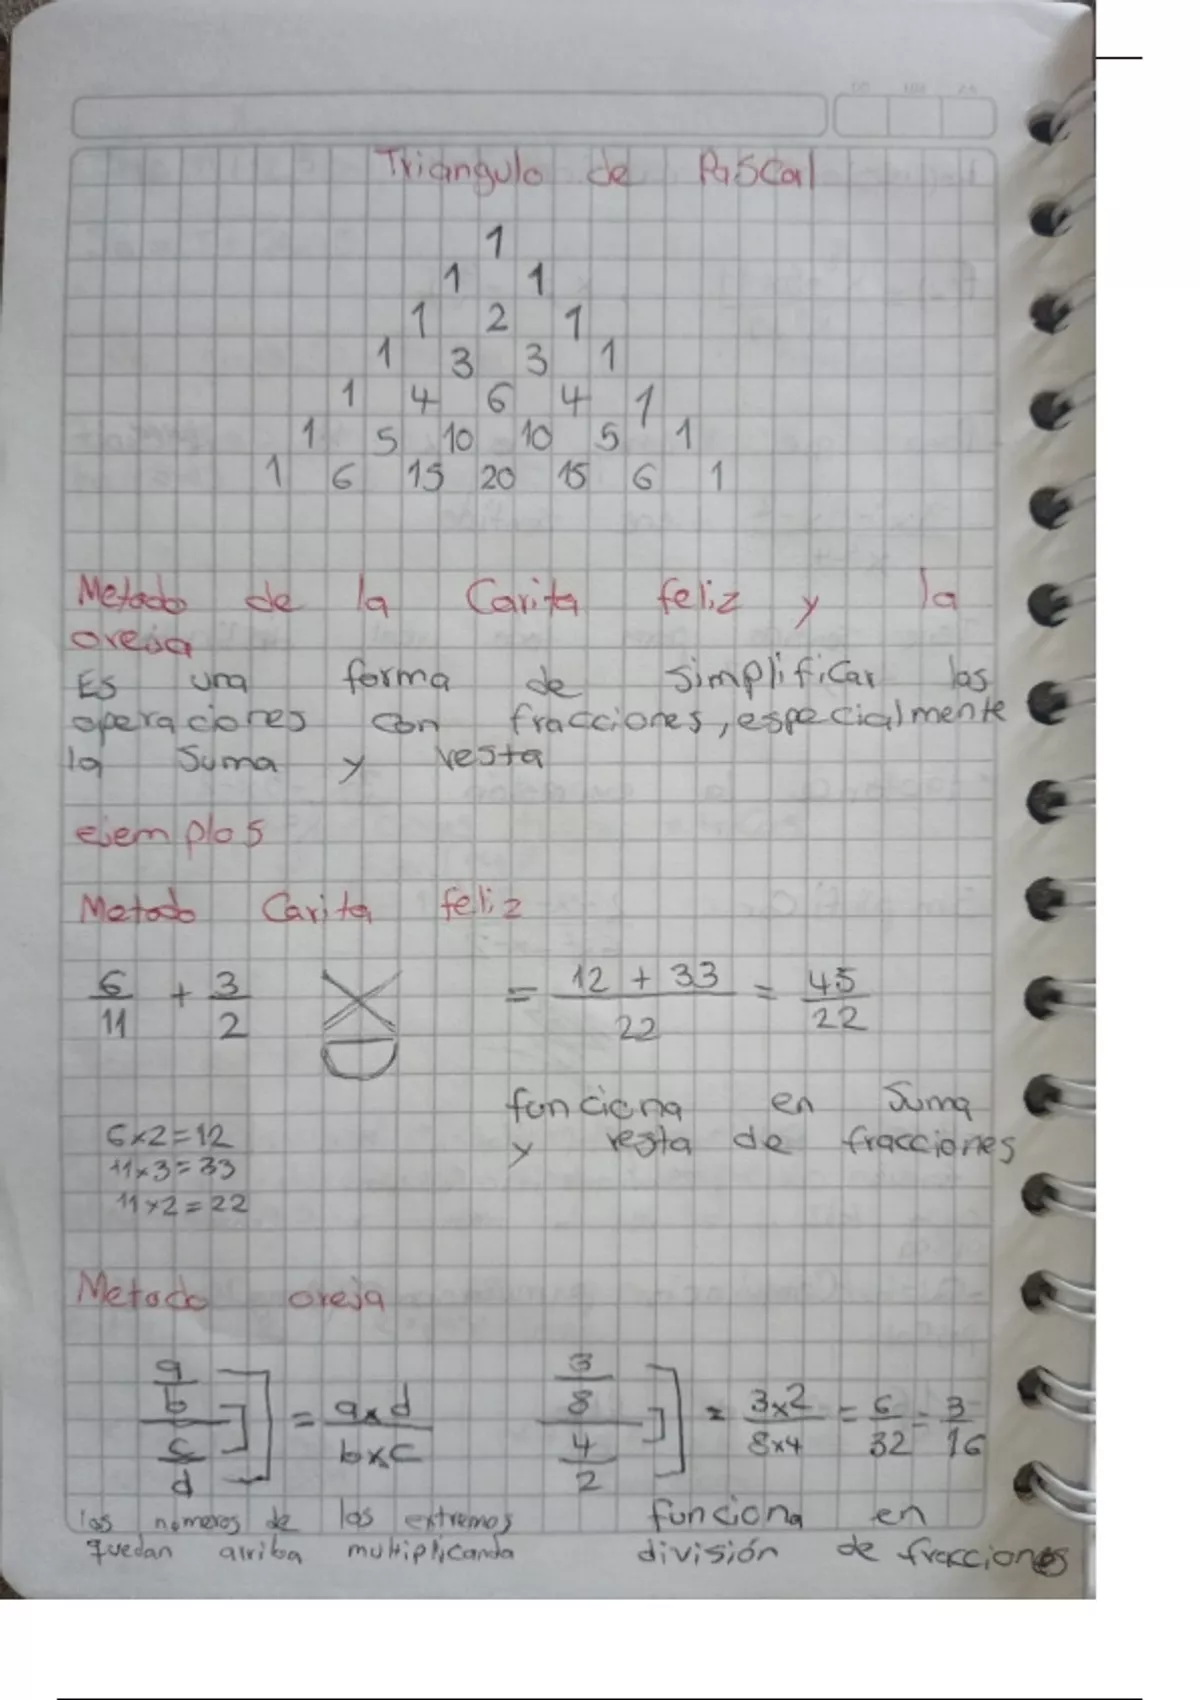 Triangulo de Pascal
1
1 1
1 2 1
1 3 3 1
1 4 6 4 1
1 5 10 10 5 1
1 6 15 20 15 6 1
Metodo de la Carita feliz y la
oreja
Es una forma de simplificar las
operaciones con fracciones, especialmente
la suma y resta
ejemplos
Metodo Carita feliz
6/11 + 3/2 = 12 + 33/22 = 45/22
funciona en suma
y resta de fracciones
6x2=12
11x3=33
11x2=22
Metodo oreja
a/b / c/d = axd/bxc
3/8 / 4/2 = 3x2/8x4 = 6/32 = 3/16
los números de los extremos
quedan arriba multiplicando
funciona en
división de fracciones